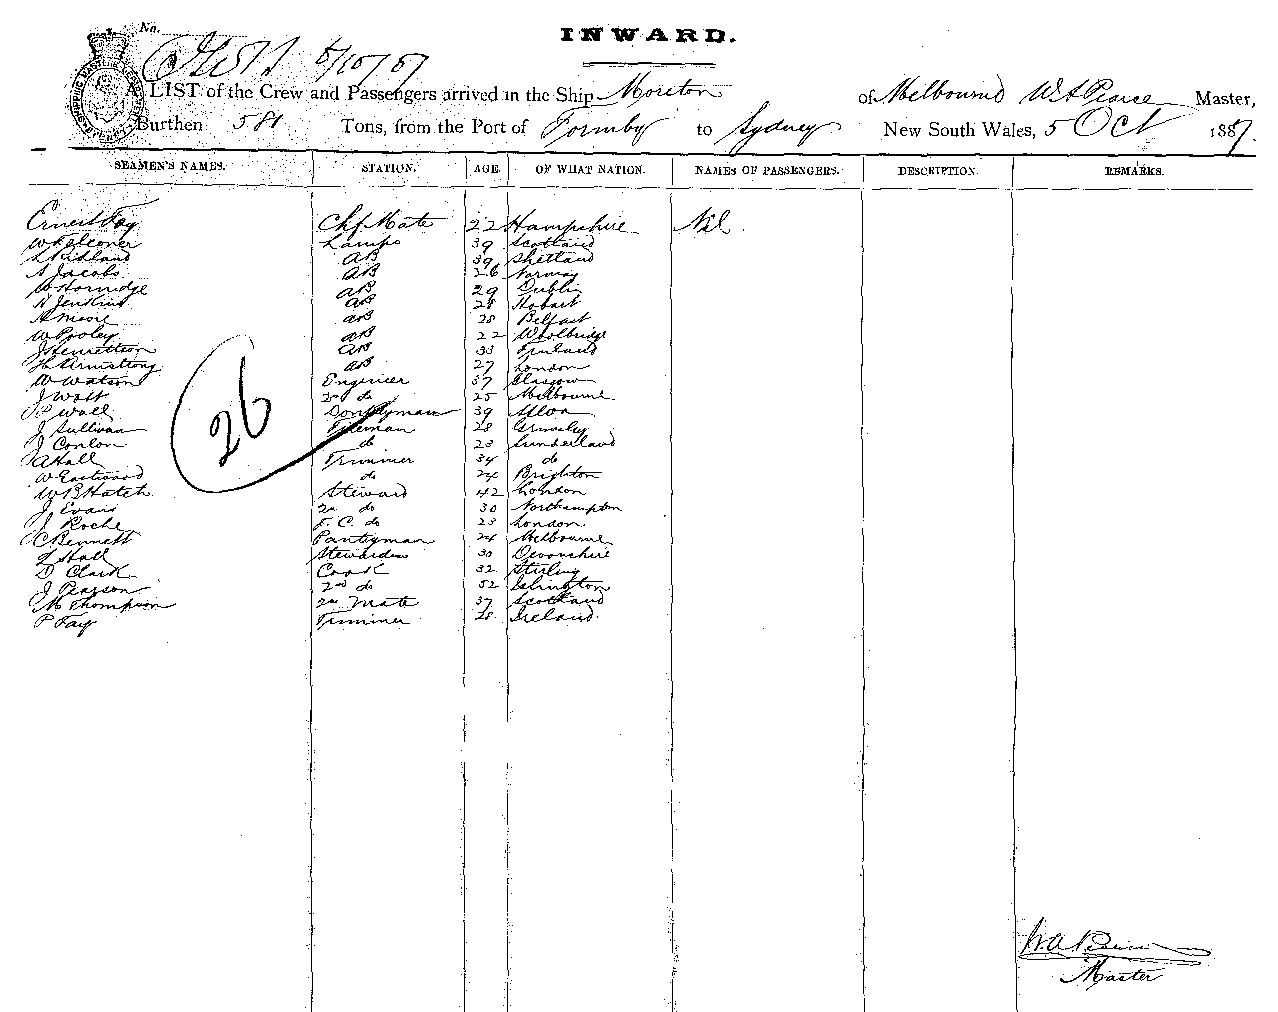 No.
INWARD.
5/10/87
A LIST of the Crew and Passengers arrived in the Ship Moreton of Melbourne W A Pearce Master,
Burthen 581 Tons, from the Port of Formby to Sydney New South Wales, 5 Oct 1887.
SEAMEN'S NAMES. STATION. AGE. OF WHAT NATION. NAMES OF PASSENGERS. DESCRIPTION. REMARKS.
Ernest Fog Chf Mate 22 Hampshire Nil.
W Falconer Lamps 39 Scotland
AB 39 Shetland
A Jacobs AB 26 Norway
W Horridge AB 29 Dublin
H Jenkins AB 28 Hobart
AB 28 Belfast
W Pooley AB 22 Woolbridge
J Henrettson AB 33 Finland
H Armstrong AB 27 London
W Watson Engineer 37 Glasgow
J Watt 2nd do 25 Melbourne
P Wall Donkyman 39 Alloa
J Sullivan Fireman 28 Grimsley
J Conlon do 23 Sunderland
A Hall Trimmer 34 do
W Eastwood do 24 Brighton
W B Hatch Steward 42 London
J Evans 2nd do 30 Northampton
J Roche F. C. do 23 London.
C Bennett Pantryman 24 Melbourne
L Hall Stewardess 30 Devonshire
D Clark Cook 32 Stirling
J Pearson 2nd do 52 Islington
M Thompson 2nd Mate 37 Scotland
P Fay Trimmer 28 Ireland
26
W.A. Pearce
Master